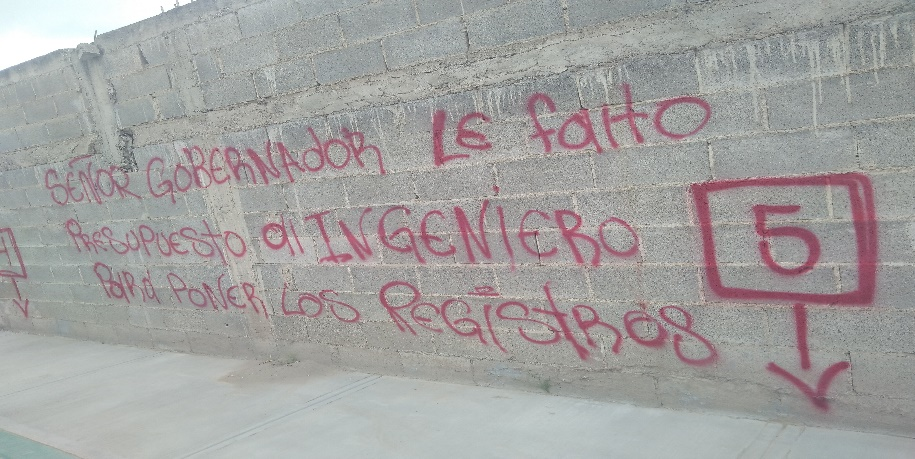 SEÑOR GOBERNADOR LE faltO
PRESUPUESTO al INGENIERO
Para PONER LOS REGIStROS
5